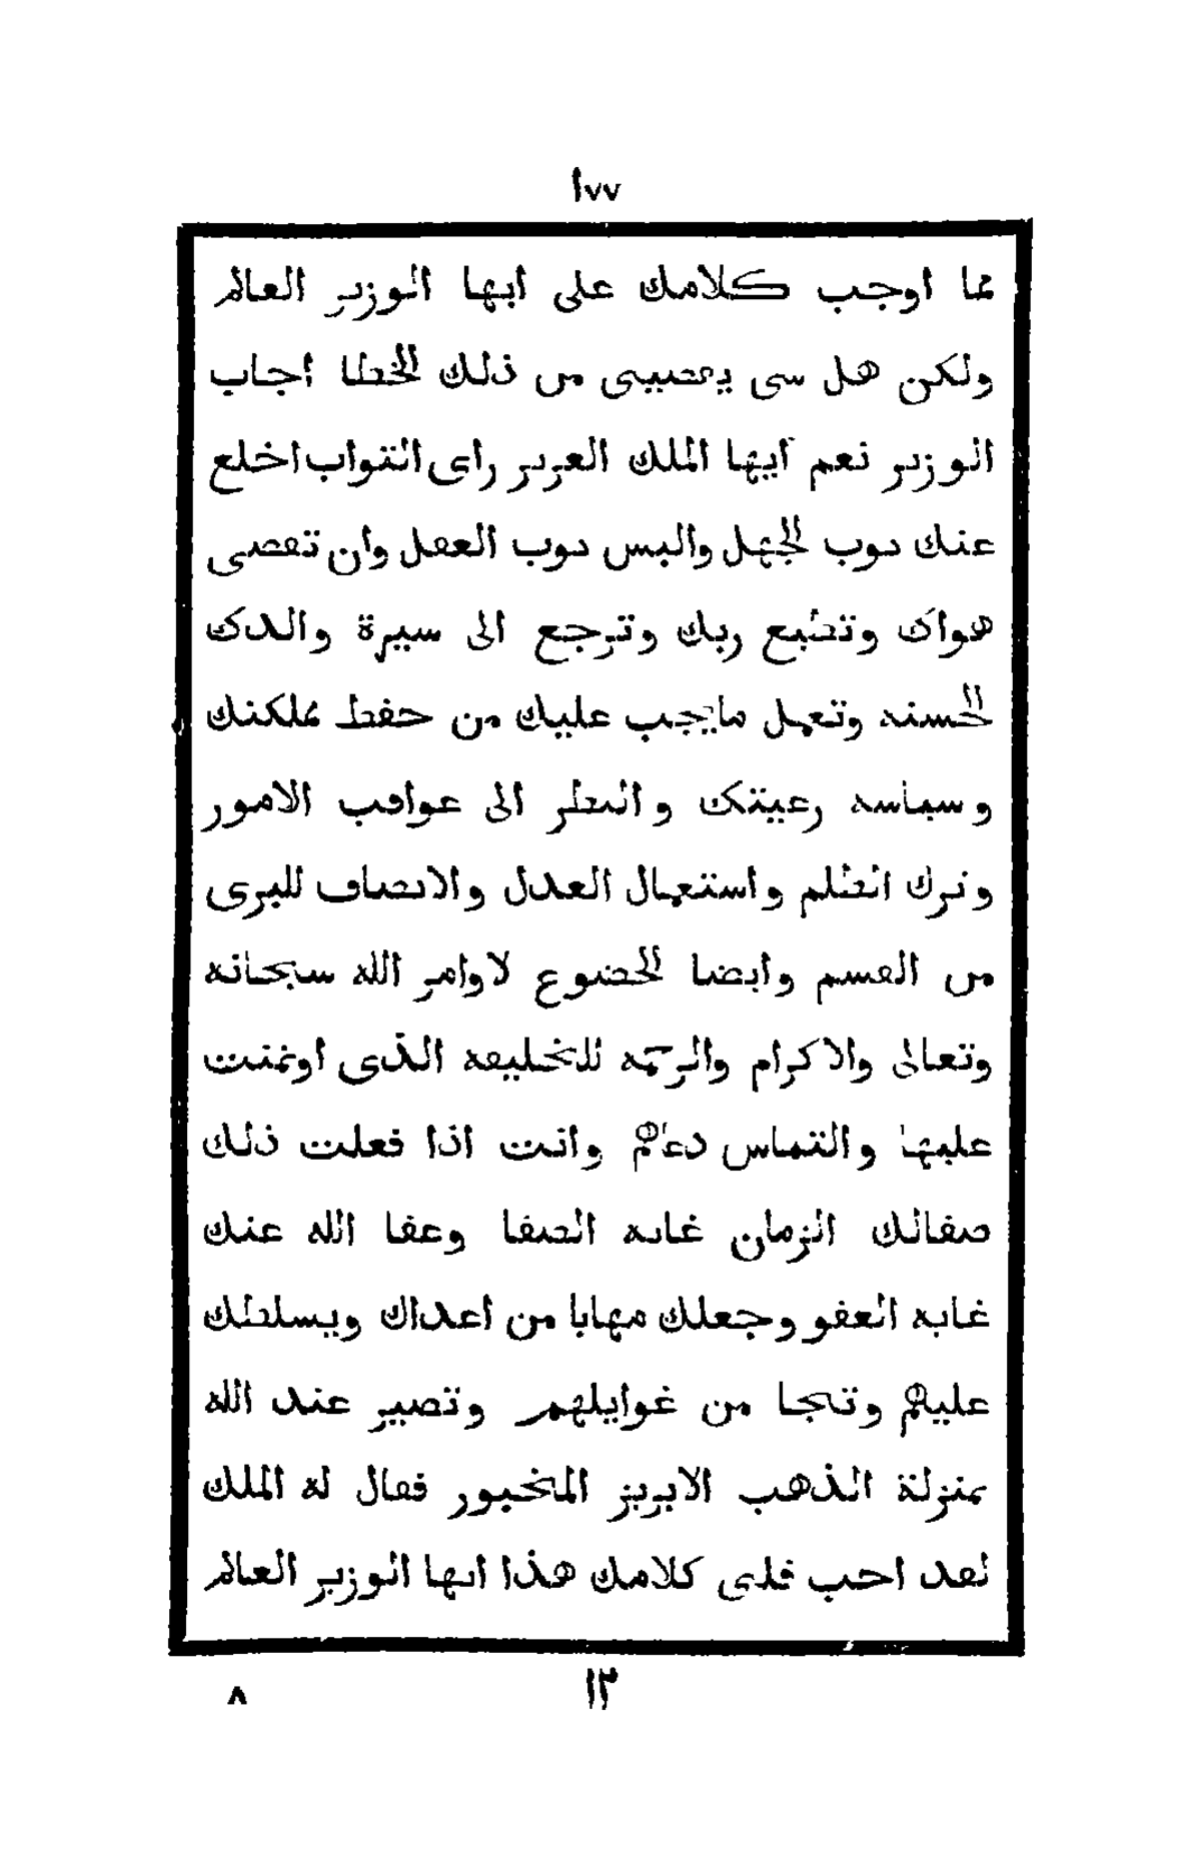 ١٧٧
مما اوجب كلامك على ايها الوزير العالم
ولكن هل شى يعصينى من ذلك الخطا اجاب
الوزير نعم ايها الملك العزيز راى الثواب اخلع
عنك ثوب الجهل والبس ثوب العقل وان تعصى
هواك وتطيع ربك وترجع الى سيرة والدك
الحسنه وتعمل مايجب عليك من حفظ مملكتك
وسياسه رعيتك والنظر الى عواقب الامور
وترك الظلم واستعمال العدل والانصاف للبرى
من القسم وايضا الخضوع لاوامر الله سبحانه
وتعالى والاكرام والرحمه للخليقه الذى اوتمنت
عليها والتماس دعاهم وانت اذا فعلت ذلك
صفالك الزمان غايه الصفا وعفا الله عنك
غايه العفو وجعلك مهابا من اعداك ويسلطك
عليهم وتنجا من غوايلهم وتصير عند الله
بمنزلة الذهب الابريز المخيور فقال له الملك
لقد احب قلبى كلامك هذا ايها الوزير العالم
١٢
٨